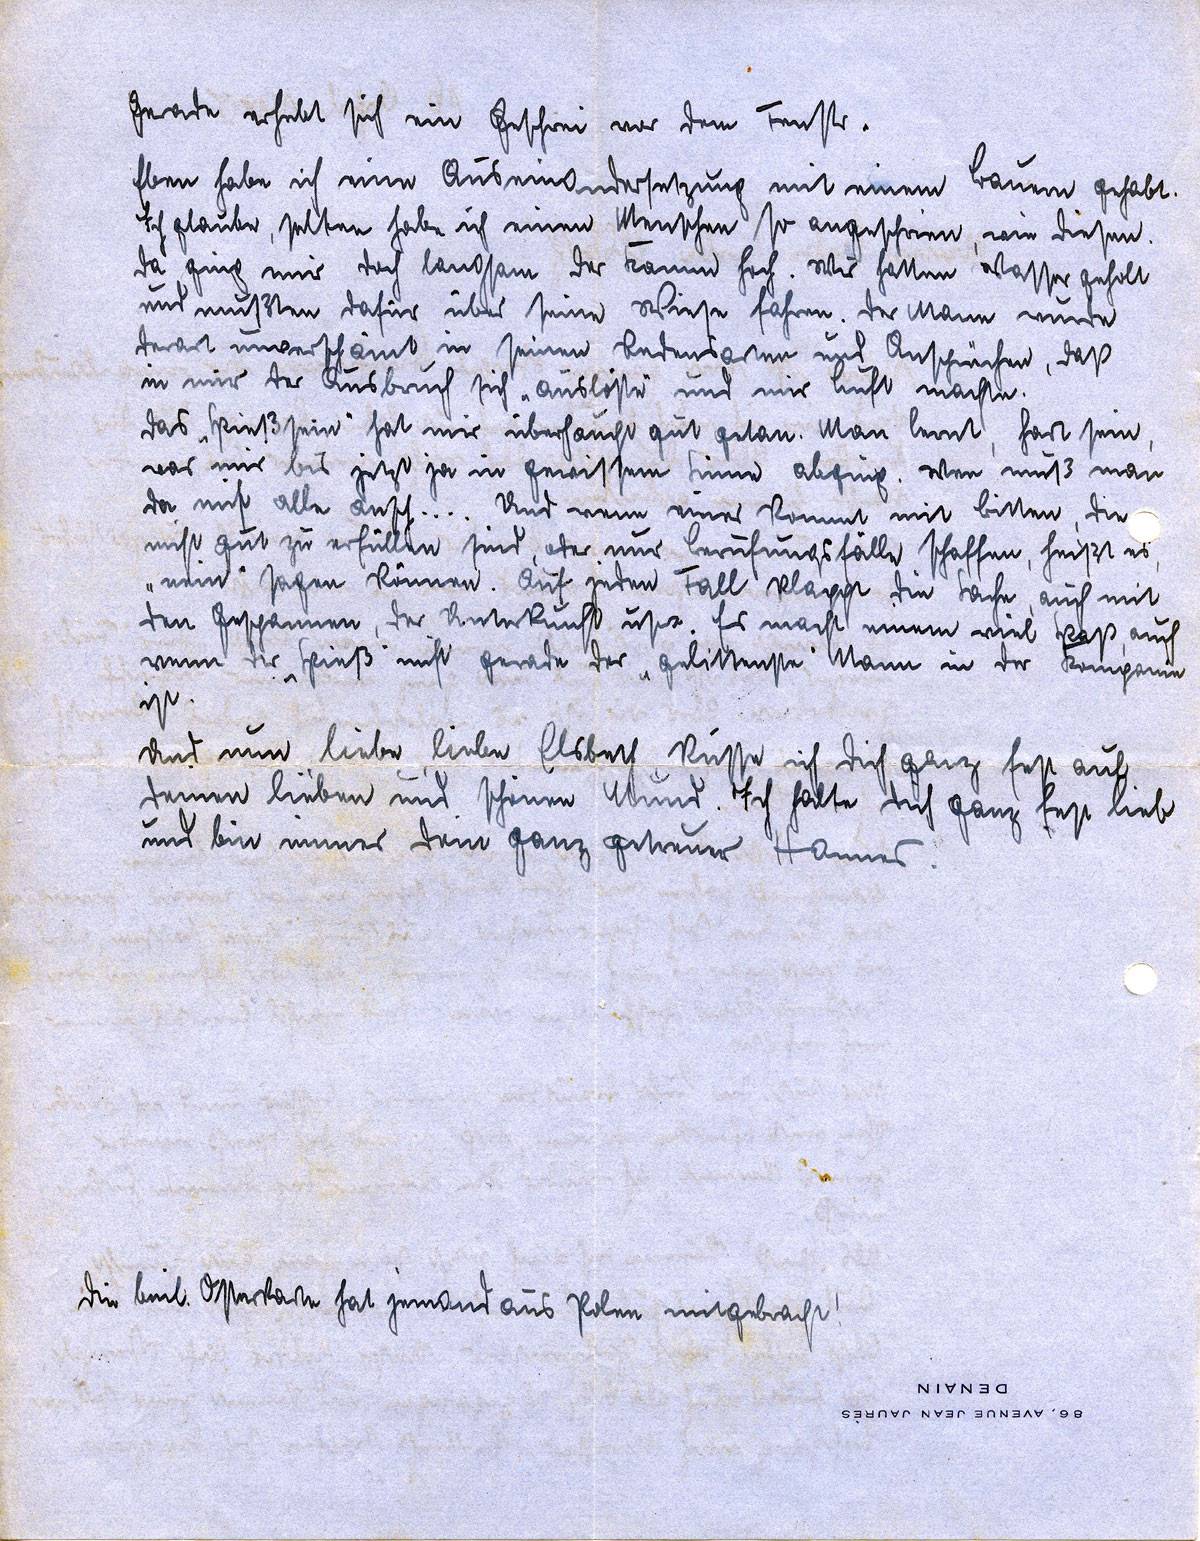 Gerade erhebt sich ein Geschrei vor dem Fenstr.
Eben habe ich eine Auseinandersetzung mit einem Bauern gehabt.
Ich glaube, selten habe ich einen Menschen so angeschrien, wie diesen.
Da ging mir doch langsam der Kamm hoch. Wir hatten Wasser geholt
und mußten dafür über seine Wiese fahren. Der Mann wurde
derart unverschämt in seinen Redensarten und Ansprüchen, daß
in mir der Ausbruch sich „auslöste" und mir Luft machte.
Das „Spieß sein" hat mir überhaupt gut getan. Man lernt, hart sein,
was mir bis jetzt ja in gewissem Sinne abging. Wen muß man
da nicht alle ansch.... Und wenn einer kommt mit Bitten, die
nicht gut zu erfüllen sind, oder nur Berufungsfälle schaffen, heißt es,
„nein" sagen können. Auf jeden Fall klappt die Sache, auch mit
den Gespannen, der Unterkunft usw. Es macht einem viel Spaß, auch
wenn der „Spieß" nicht gerade der „gelittenste" Mann in der Kompanie
ist.
Und nun liebe, liebe Elsbeth küsse ich Dich ganz fest auf
Deinen lieben und schönen Mund. Ich halte Dich ganz fest lieb
und bin immer Dein ganz getreuer Hannes.
Die beil. Osterkarte hat jemand aus Polen mitgebracht!
86, AVENUE JEAN JAURÈS
DENAIN